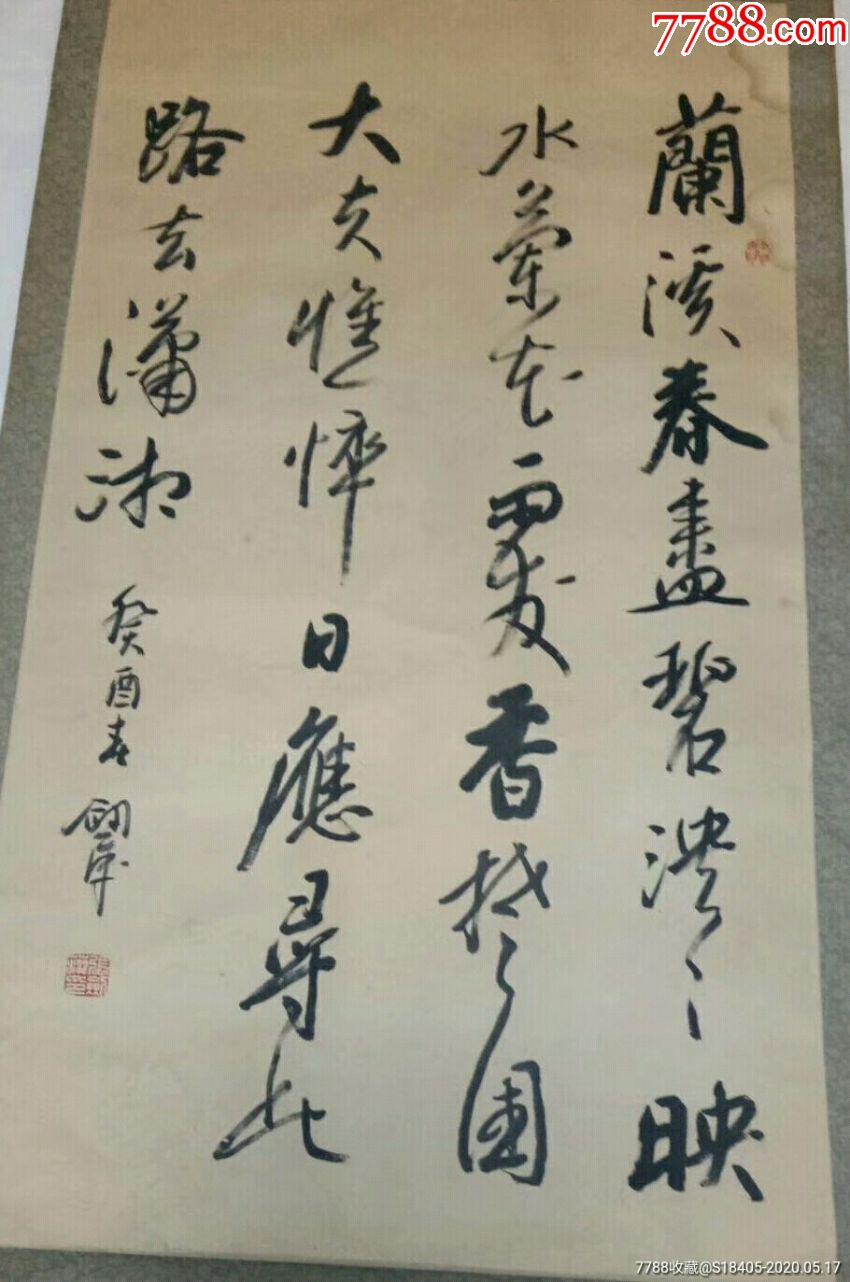 7788.com
蘭溪春盡碧泱々映
水蘭花雨發香楚國
大夫憔悴日應尋此
路去瀟湘
癸酉春
7788收藏@S18405-2020.05.17